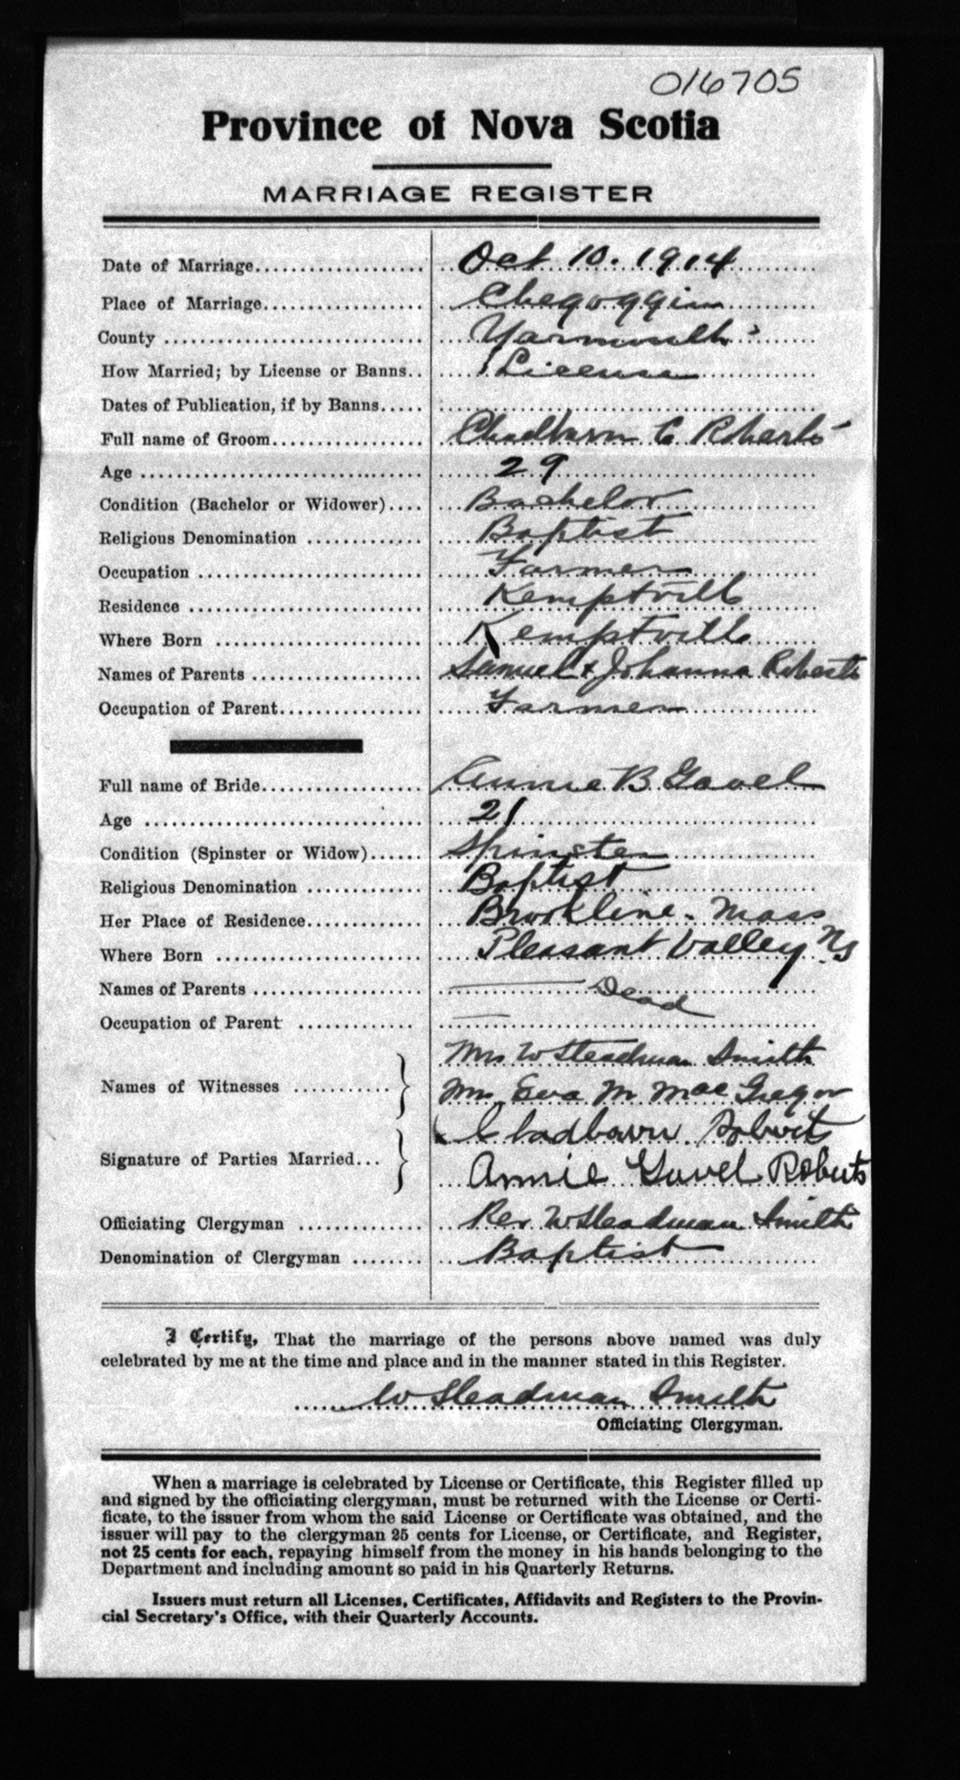 016705
Province of Nova Scotia
MARRIAGE REGISTER
Date of Marriage.................... Oct 10. 1914
Place of Marriage................... Chegoggin
County .............................. Yarmouth
How Married; by License or Banns.. License
Dates of Publication, if by Banns.....
Full name of Groom.................. Chadburn C Roberts
Age ................................. 29
Condition (Bachelor or Widower).... Bachelor
Religious Denomination ............. Baptist
Occupation .......................... Farmer
Residence ........................... Kemptville
Where Born ......................... Kemptville
Names of Parents ................... Samuel & Johanna Roberts
Occupation of Parent................ Farmer
Full name of Bride................... Annie B Gavel
Age ................................. 21
Condition (Spinster or Widow)...... Spinster
Religious Denomination ............. Baptist
Her Place of Residence............. Brookline. Mass
Where Born ......................... Pleasant Valley NS
Names of Parents ................... Dead
Occupation of Parent ..............
Names of Witnesses ........... } Mrs W Steadman Smith
Mrs Eva M MacGregor
Signature of Parties Married... } Chadbourn Roberts
Annie Gavel Roberts
Officiating Clergyman .............. Rev W Steadman Smith
Denomination of Clergyman ........ Baptist
I Certify, That the marriage of the persons above named was duly
celebrated by me at the time and place and in the manner stated in this Register.
W Steadman Smith
Officiating Clergyman.
When a marriage is celebrated by License or Certificate, this Register filled up
and signed by the officiating clergyman, must be returned with the License or Certi-
ficate, to the issuer from whom the said License or Certificate was obtained, and the
issuer will pay to the clergyman 25 cents for License, or Certificate, and Register,
not 25 cents for each, repaying himself from the money in his hands belonging to the
Department and including amount so paid in his Quarterly Returns.
Issuers must return all Licenses, Certificates, Affidavits and Registers to the Provin-
cial Secretary's Office, with their Quarterly Accounts.